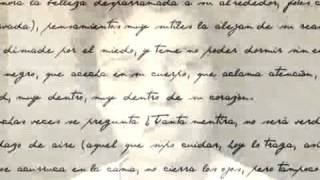 la belleza desparramada a su alrededor, fotos
vada), pensamientos muy sutiles la alejan de su rea
dimade por el miedo, y teme no poder dormir sin e
negro, que acecha en su cuerpo, que aclama atención,
d, muy dentro, muy dentro de su corazón.
chas veces se pregunta ¿Tanta mentira, no será verd
lago de aire (aquel que supo cuidar, hoy lo traga, así
se acurruca en la cama, no cierra los ojos, pero tampoc